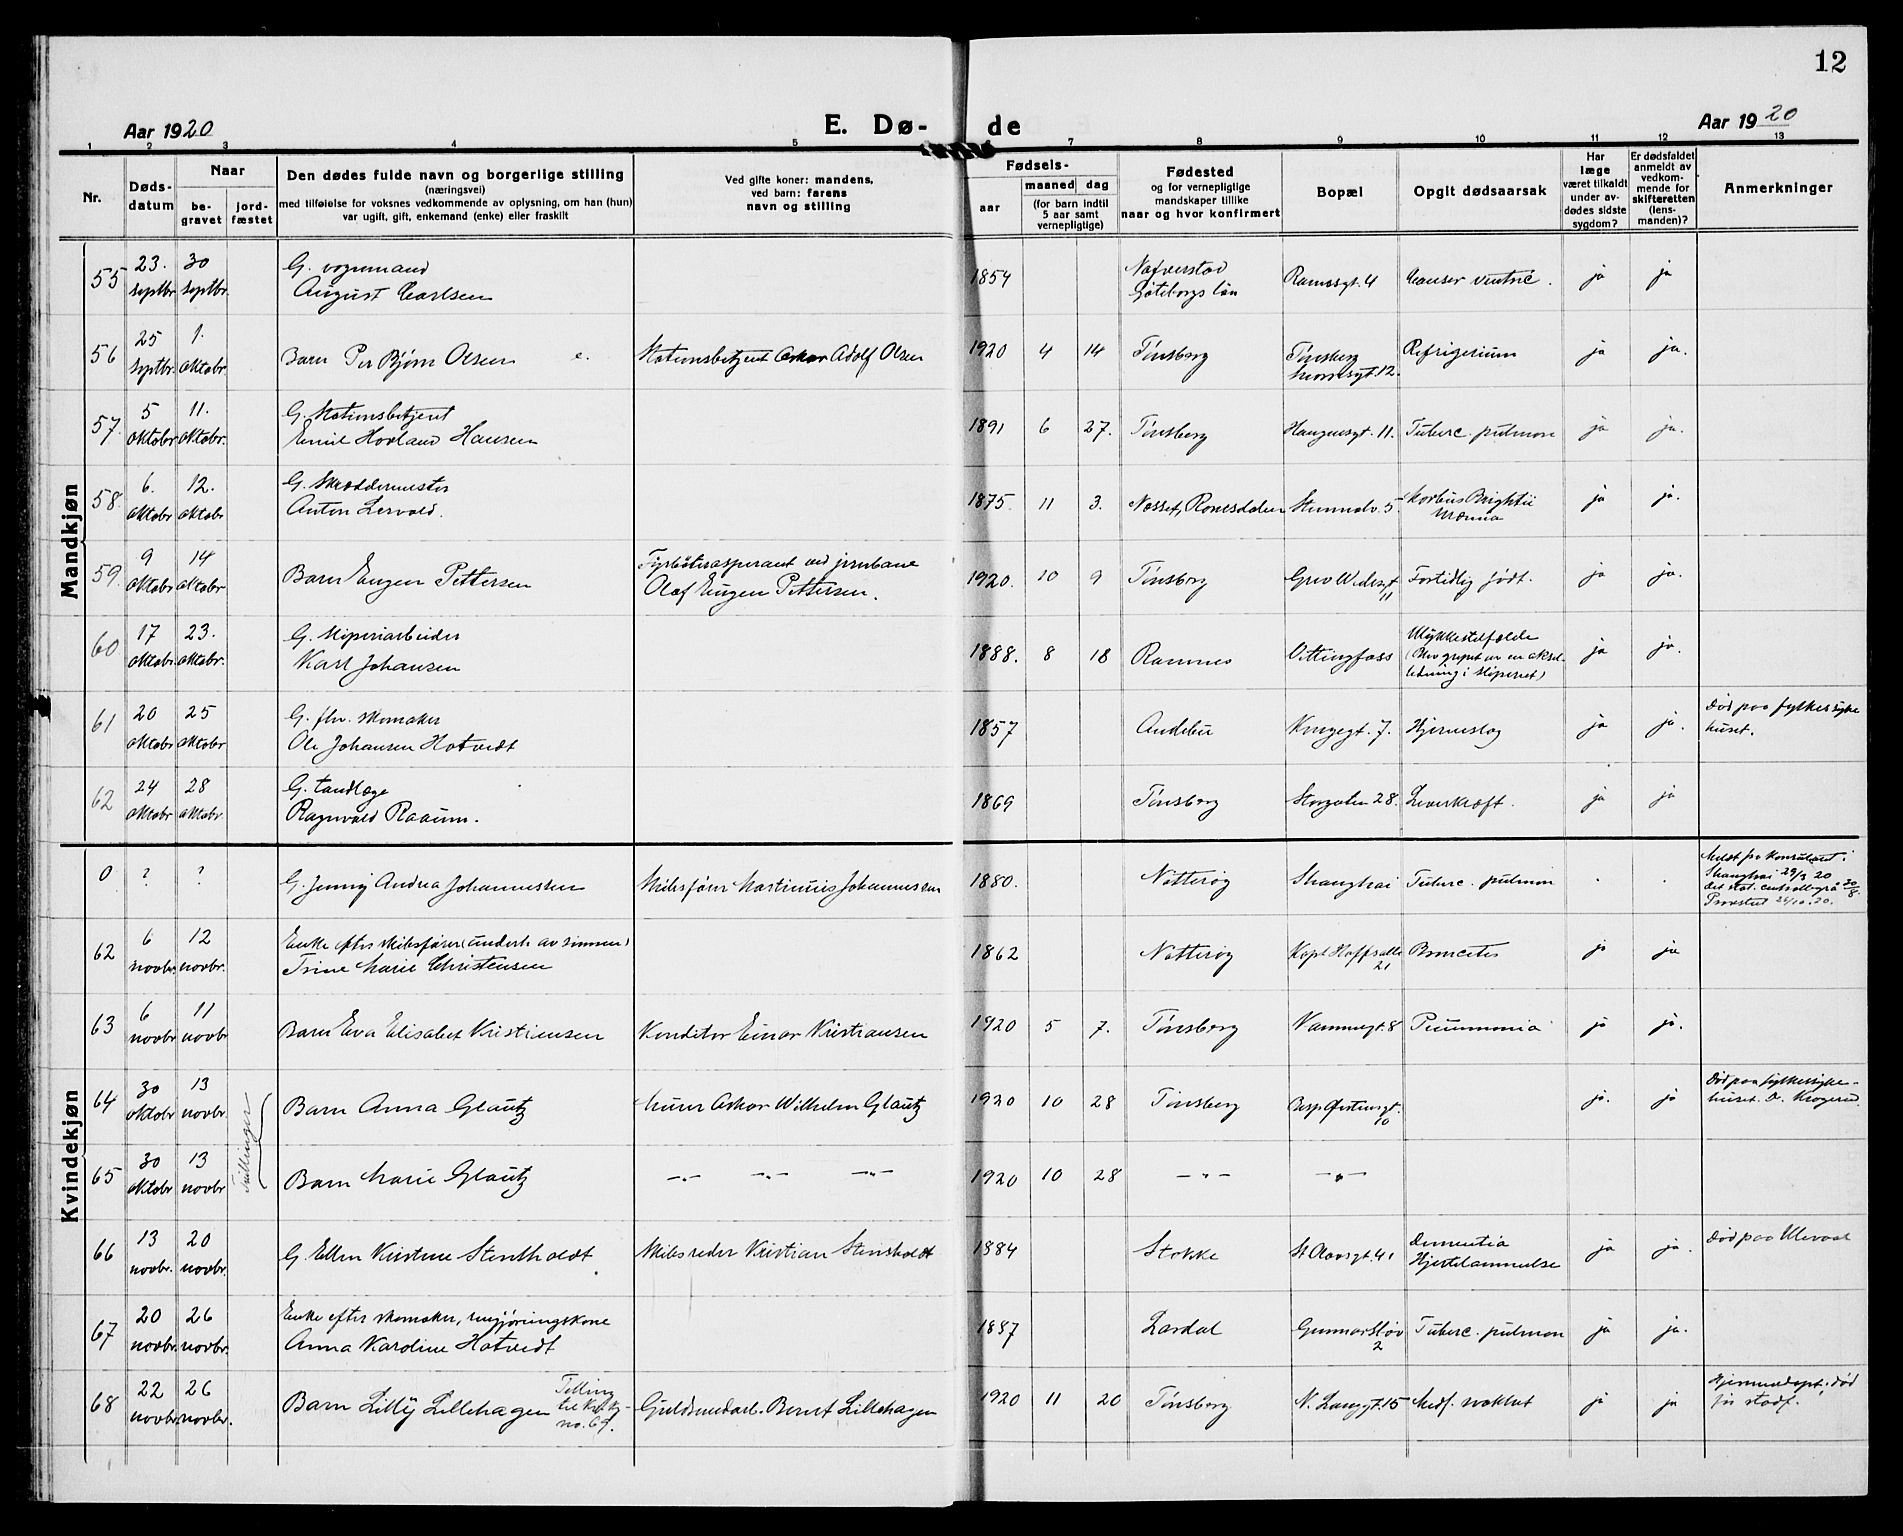 12
Aar 1920
E. Dø- de
Aar 1920
1 2 3 4 5 7 8 9 10 11 12 13
Nr.
Døds-
datum
Naar
be-
gravet
jord-
fæstet
Den dødes fulde navn og borgerlige stilling
(næringsvei)
med tilføielse for voksnes vedkommende av oplysning, om han (hun)
var ugift, gift, enkemand (enke) eller fraskilt
Ved gifte koner: mandens,
ved barn: farens
navn og stilling
Fødsels-
aar
maaned dag
(for barn indtil
5 aar samt
vernepligtige)
Fødested
og for vernepligtige
mandskaper tillike
naar og hvor konfirmert
Bopæl
Opgit dødsaarsak
Har
læge
været tilkaldt
under av-
dødes sidste
sygdom?
Er dødsfaldet
anmeldt av
vedkom-
mende for
skifteretten
(lens-
manden)?
Anmerkninger
Mandkjøn
55 23. septbr. 30 septbr. G. vognmand
August Carlsen
1854 Nafverstad
Göteborgs län
Ramsgt. 4 Cancer ventric. ja ja
56 25 septbr. 1. oktobr. Barn Per Bjørn Olsen e. Stationsbetjent Oskar Adolf Olsen 1920 4 14 Tønsberg Tønsberg
12. Refrigerium ja ja.
57. 5 oktobr. 11. oktobr. G. Stationsbetjent
Emil Hovland Hansen
1891 6 27. Tønsberg Haugensgt. 11. Tuberc. pulmon ja ja.
58. 6. oktobr 12. oktobr G. Skræddermester
Anton Lervold.
1875. 11 3. Nesset, Romsdalen 5 Morbus Brightii
Uræmia
ja ja.
59. 9 oktobr 14 oktobr Barn Eugen Pettersen Fyrbøteraspirant ved jernbane
Olaf Eugen Pettersen.
1920. 10 9 Tønsberg Grev Wedelsgt
11
Fortidlig født. ja ja.
60 17 oktobr. 23. oktobr. G. Sliperiarbeider
Karl Johansen
1888. 8 18 Ramnes Vittingfoss Ulykkestilfælde
(Blev grepet av en aksel-
ledning i sliperiet)
ja ja.
61 20 oktobr 25 oktobr G. fhv. skomaker
Ole Johansen Hotvedt
1857 Andebu Kongegt. 7. Hjerneslag ja ja. Død paa fylkessyke
huset.
62 24 oktobr 28 oktobr. G. tandlæge
Ragnvald Raaum.
1869 Tønsberg Storgaten 28. Leverkræft. ja ja
Kvindekjøn
0 ? ? G. Jenny Andrea Johannessen Skibsfører Martinius Johannessen 1880. Nøtterøy Shanghai Tuberc. pulmon Meldt fra Konsulatet i
Shanghai 29/3 20
det stat. centralbyrå 30/8.
26/10. 20.
62 6 novbr. 12 novbr. Enke efter skibsfører (underh. av sønnen)
Trine Marie Christensen
1862 Nøtterøy Kapt. Hoffsalle
21
Broncitis ja ja
63 6 novbr 11 novbr. Barn Eva Elisabet Kristiansen Konditor Einar Kristiansen 1920 5 7. Tønsberg 8 Pneumonia ja ja.
64 30 oktobr 13 novbr. Tvillinger Barn Anna Glautz Murer Oskar Wilhelm Glautz 1920 10 28 Tønsberg
10
ja. ja Død paa fylkessyke-
huset.
65 30 oktobr 13 novbr Barn Marie Glautz -"- -"- -"- 1920 10 28 -"- -"-
66 13 novbr. 20 novbr. G. Ellen Kristine Stensholdt Skibsreder Kristian Stensholdt 1884 Stokke St. Olavsgt. 41 Dementia
Hjertelammelse
ja ja. Død paa Ulevaal
67 20 novbr. 26 novbr. Enke efter skomaker, rengjøringskone
Anna Karoline Hotvedt
1887 Lardal
2
Tuberc. pulmon ja ja.
68 22 novbr 26 novbr. Barn Lilly Lillehagen Tvilling
no. 69.
Guldsmedarb. Bernt Lillehagen 1920 11 20 Tønsberg N. Langgt. 15 Medf. ja ja Hjemmedøpt. død
før stadf.